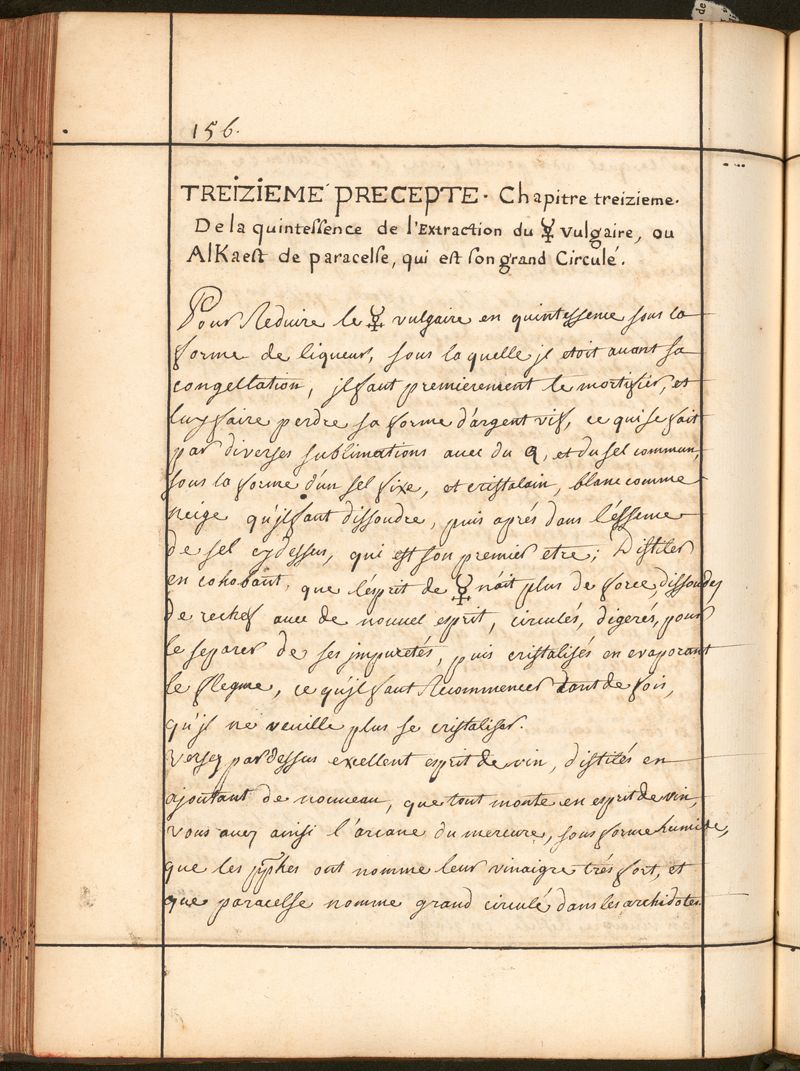 156.
TREIZIEME PRECEPTE. Chapitre treizieme.
De la quintessence de l'Extraction du ☿ vulgaire, ou
AlKaest de paracelse, qui est son grand Circulé.
Pour Reduire le ☿ vulgaire en quintessense sous la
forme de liqueur, sous laquelle jl etoit avant sa
congellation, jl faut premierement le mortifier, et
luy faire perdre sa forme d'argent vif, ce qui se fait
par diverses sublimations avec du , et du sel commun,
sous la forme d'un sel fixe, et cristalain, blanc comme
neige qu'jl faut dissoudre, puis aprés dans l'éssense
de sel cydessus, qui est son premier etre; Distiler
en cohobant, que l'esprit de ☿ n'ait plus de force, dissoudez
de rechef avec de nouvel esprit, circulés, digerés, pour
le separer de ses jmpuretés, puis cristalisés en evaporant
le flegme, ce qu'jl faut Recommencer tant de fois,
qu'jl ne veuille plus se cristaliser.
Versez pardessus excellent esprit de vin, distilés en
ajoutant de nouveau, que tout monte en esprit de vin,
vous avez ainsi l'arcane du mercure, sous forme humide,
que les ont nomme leur vinaigre trés fort, et
que paracelse nomme grand circulé dans les archidotes